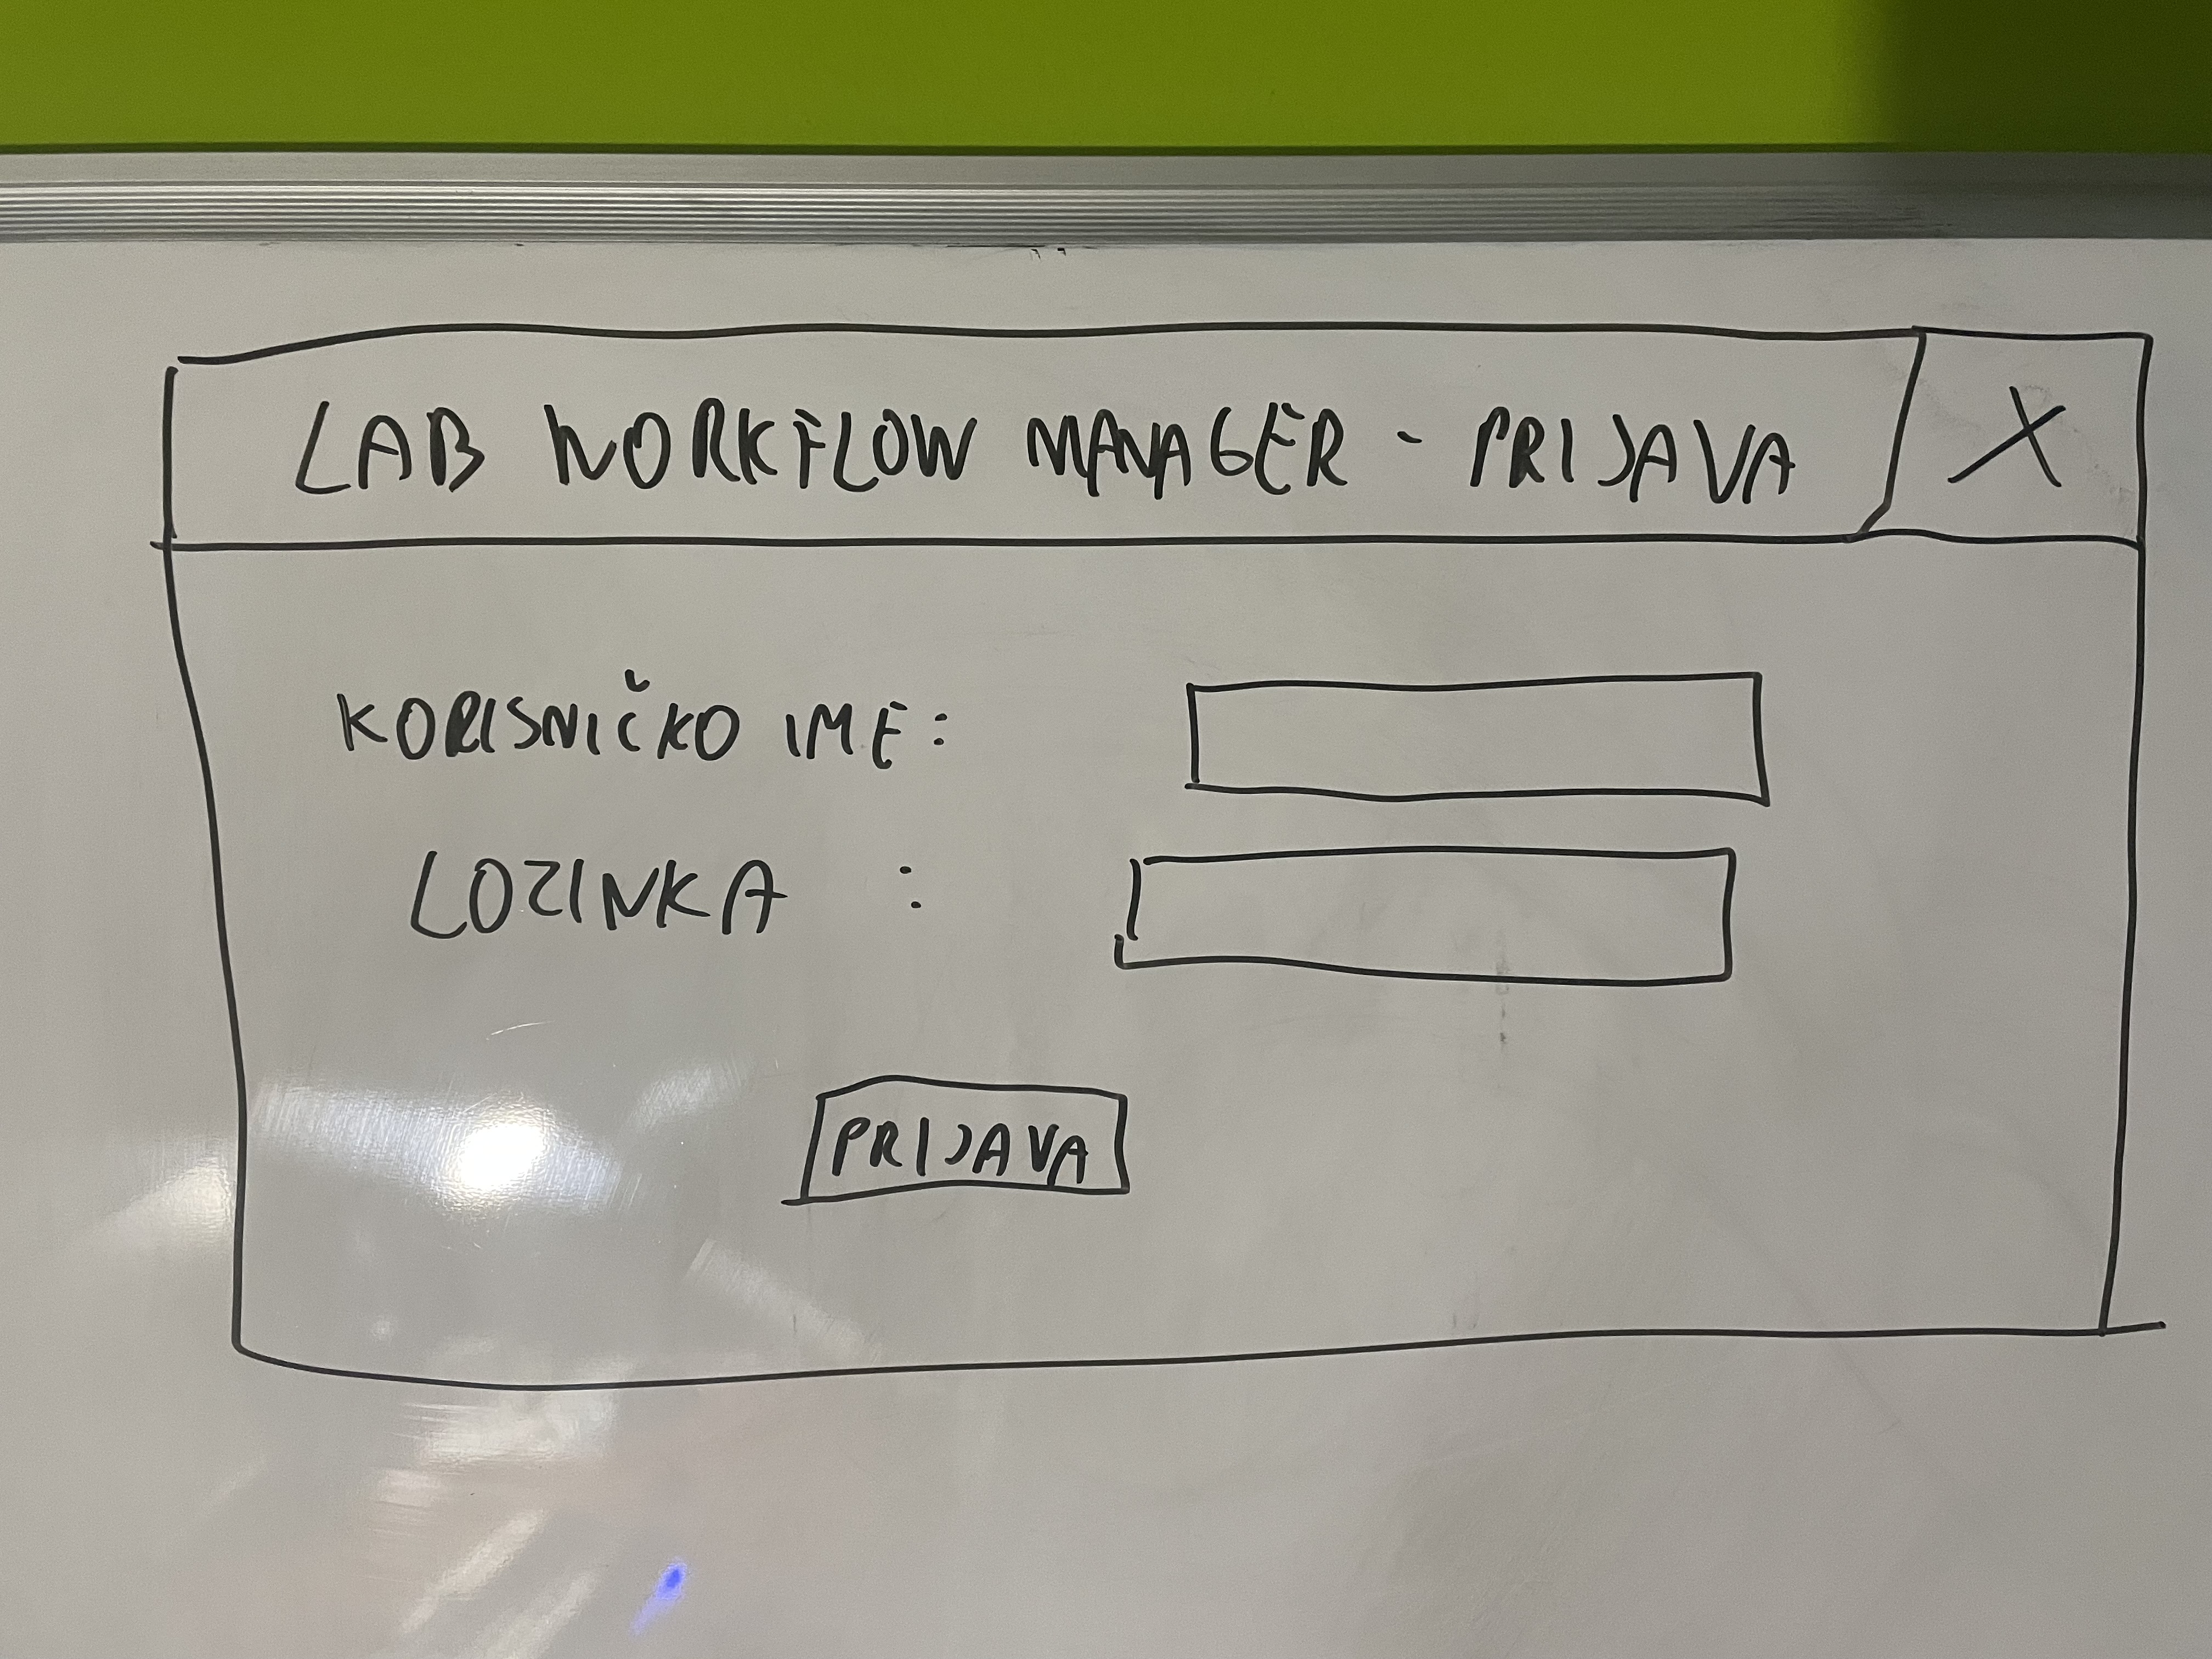 LAB WORKFLOW MANAGER - PRIJAVA X
KORISNIČKO IME:
LOZINKA :
PRIJAVA